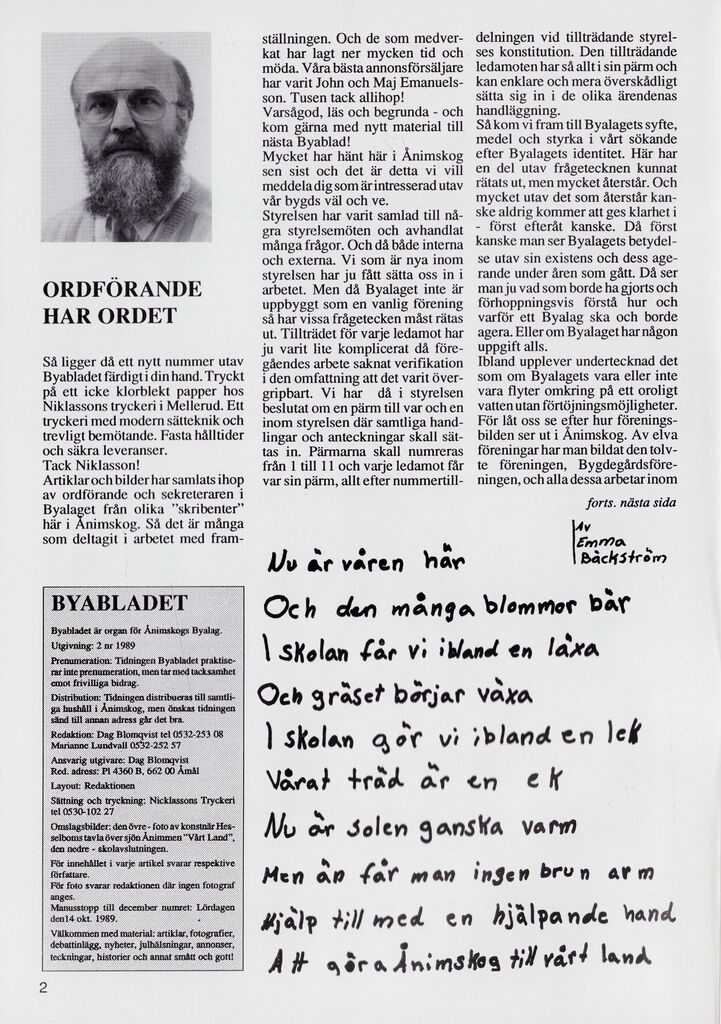 ORDFÖRANDE
HAR ORDET
Så ligger då ett nytt nummer utav
Byabladet färdigt i din hand. Tryckt
på ett icke klorblekt papper hos
Niklassons tryckeri i Mellerud. Ett
tryckeri med modern sätteknik och
trevligt bemötande. Fasta hålltider
och säkra leveranser.
Tack Niklasson!
Artiklar och bilder har samlats ihop
av ordförande och sekreteraren i
Byalaget från olika "skribenter"
här i Ånimskog. Så det är många
som deltagit i arbetet med fram-
ställningen. Och de som medver-
kat har lagt ner mycken tid och
möda. Våra bästa annonsförsäljare
har varit John och Maj Emanuels-
son. Tusen tack allihop!
Varsågod, läs och begrunda - och
kom gärna med nytt material till
nästa Byablad!
Mycket har hänt här i Ånimskog
sen sist och det är detta vi vill
meddela dig som är intresserad utav
vår bygds väl och ve.
Styrelsen har varit samlad till nå-
gra styrelsemöten och avhandlat
många frågor. Och då både interna
och externa. Vi som är nya inom
styrelsen har ju fått sätta oss in i
arbetet. Men då Byalaget inte är
uppbyggt som en vanlig förening
så har vissa frågetecken måst rätas
ut. Tillträdet för varje ledamot har
ju varit lite komplicerat då före-
gåendes arbete saknat verifikation
i den omfattning att det varit över-
gripbart. Vi har då i styrelsen
beslutat om en pärm till var och en
inom styrelsen där samtliga hand-
lingar och anteckningar skall sät-
tas in. Pärmarna skall numreras
från 1 till 11 och varje ledamot får
var sin pärm, allt efter nummertill-
delningen vid tillträdande styrel-
ses konstitution. Den tillträdande
ledamoten har så allt i sin pärm och
kan enklare och mera överskådligt
sätta sig in i de olika ärendenas
handläggning.
Så kom vi fram till Byalagets syfte,
medel och styrka i vårt sökande
efter Byalagets identitet. Här har
en del utav frågetecknen kunnat
rätats ut, men mycket återstår. Och
mycket utav det som återstår kan-
ske aldrig kommer att ges klarhet i
- först efteråt kanske. Då först
kanske man ser Byalagets betydel-
se utav sin existens och dess age-
rande under åren som gått. Då ser
man ju vad som borde ha gjorts och
förhoppningsvis förstå hur och
varför ett Byalag ska och borde
agera. Eller om Byalaget har någon
uppgift alls.
Ibland upplever undertecknad det
som om Byalagets vara eller inte
vara flyter omkring på ett oroligt
vatten utan förtöjningsmöjligheter.
För låt oss se efter hur förenings-
bilden ser ut i Ånimskog. Av elva
föreningar har man bildat den tolv-
te föreningen, Bygdegårdsföre-
ningen, och alla dessa arbetar inom
forts. nästa sida
Av
Emma
Bäckström
Nu är våren här
Och den många blommor bär
I skolan får vi ibland en läxa
Och gräset börjar växa
I skolan gör vi ibland en lek
Vårat träd är en ek
Nu är solen ganska varm
Men än får man ingen brun arm
Hjälp till med en hjälpande hand
Att göra Ånimskog till vårt land
BYABLADET
Byabladet är organ för Ånimskogs Byalag.
Utgivning: 2 nr 1989
Prenumeration: Tidningen Byabladet praktise-
rar inte prenumeration, men tar med tacksamhet
emot frivilliga bidrag.
Distribution: Tidningen distribueras till samtli-
ga hushåll i Ånimskog, men önskas tidningen
sänd till annan adress går det bra.
Redaktion: Dag Blomqvist tel 0532-253 08
Marianne Lundvall 0532-252 57
Ansvarig utgivare: Dag Blomqvist
Red. adress: Pl 4360 B, 662 00 Åmål
Layout: Redaktionen
Sättning och tryckning: Nicklassons Tryckeri
tel 0530-102 27
Omslagsbilder: den övre - foto av konstnär Hes-
selboms tavla över sjön Ånimmen "Vårt Land",
den nedre - skolavslutningen.
För innehållet i varje artikel svarar respektive
författare.
För foto svarar redaktionen där ingen fotograf
anges.
Manusstopp till december numret: Lördagen
den 14 okt. 1989.
Välkommen med material: artiklar, fotografier,
debattinlägg, nyheter, julhälsningar, annonser,
teckningar, historier och annat smått och gott!
2